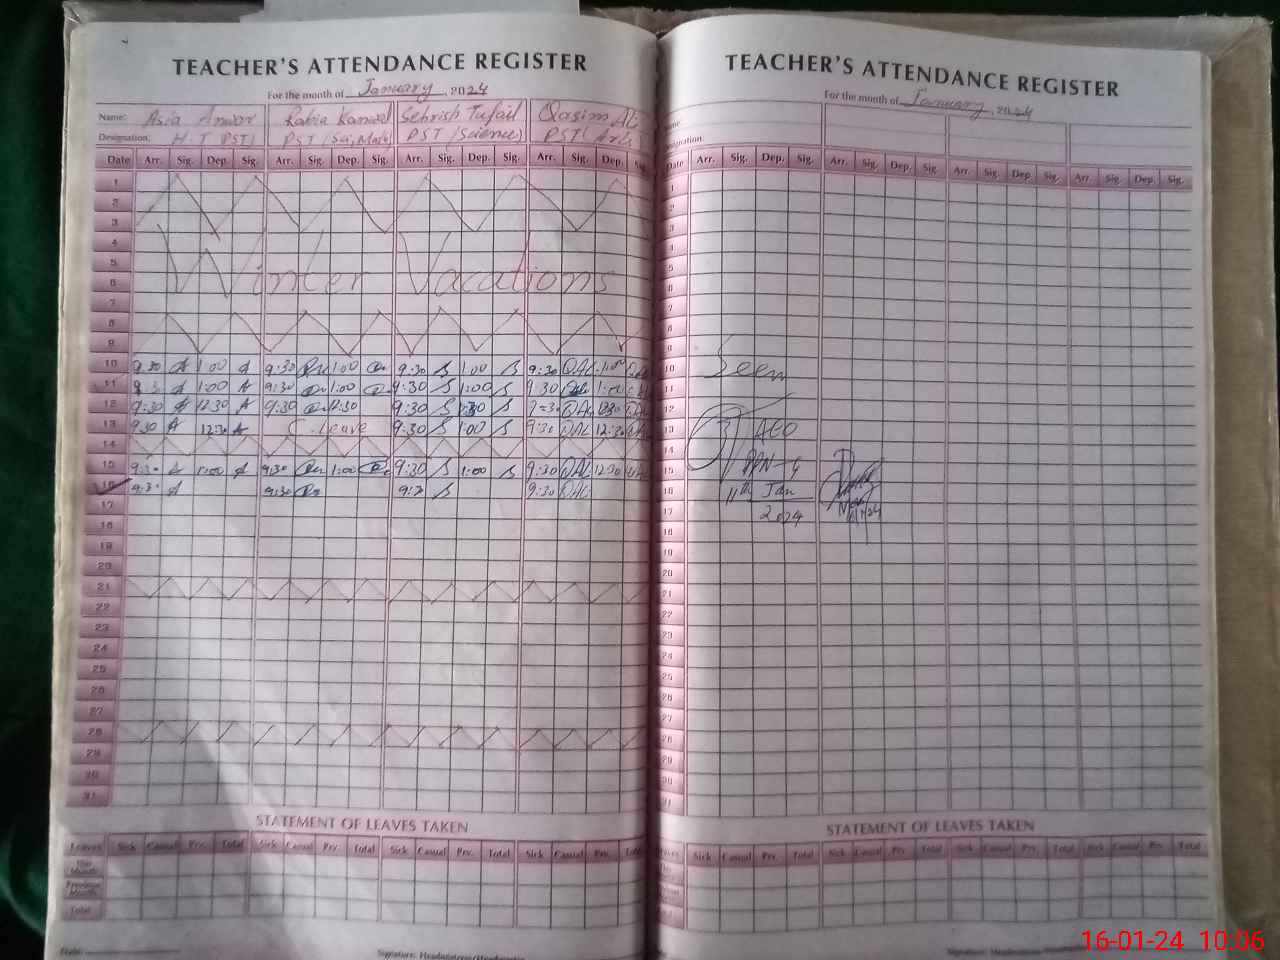 TEACHER'S ATTENDANCE REGISTER
For the month of January, 2024
Name: Asia Anwar Rabia Kanwal Sehrish Tufail Qasim Ali
Designation: H.T PST) PST (Sci, Math) PST (Science) PST( Arts
Date Arr. Sig. Dep. Sig. Arr. Sig. Dep. Sig. Arr. Sig. Dep. Sig. Arr. Sig. Dep.
1
2
3
4
5
6
7
8
9
Winter Vacations
10 9:30 1:00 9:30 1:00 9:30 1:00 9:30 1:00
11 9:30 1:00 9:30 1:00 9:30 1:00 9:30
12 9:30 12:30 9:30 12:30 9:30 9:30
13 9:30 12:30 C. Leave 9:30 1:00 9:30 12:30
14
15 9:30 1:00 9:30 1:00 9:30 1:00 9:30 12:30
16 9:30 9:30 9:30 9:30
17
18
19
20
21
22
23
24
25
26
27
28
29
30
31
STATEMENT OF LEAVES TAKEN
Leaves Sick Casual Prv. Total Sick Casual Prv. Total Sick Casual Prv. Total Sick Casual Prv.
This Month
Total
Date:
Signature: Headmistress/Headmaster
TEACHER'S ATTENDANCE REGISTER
For the month of January, 2024
Name:
Designation:
Date Arr. Sig. Dep. Sig. Arr. Sig. Dep. Sig. Arr. Sig. Dep. Sig. Arr. Sig. Dep. Sig.
1
2
3
4
5
6
7
8
9
10
11
12
13
14
15
16
17
18
19
20
21
22
23
24
25
26
27
28
29
30
31
Seen
AEO
11th Jan
2024
STATEMENT OF LEAVES TAKEN
Leaves Sick Casual Prv. Total Sick Casual Prv. Total Sick Casual Prv. Total Sick Casual Prv. Total
Total
16-01-24 10:06